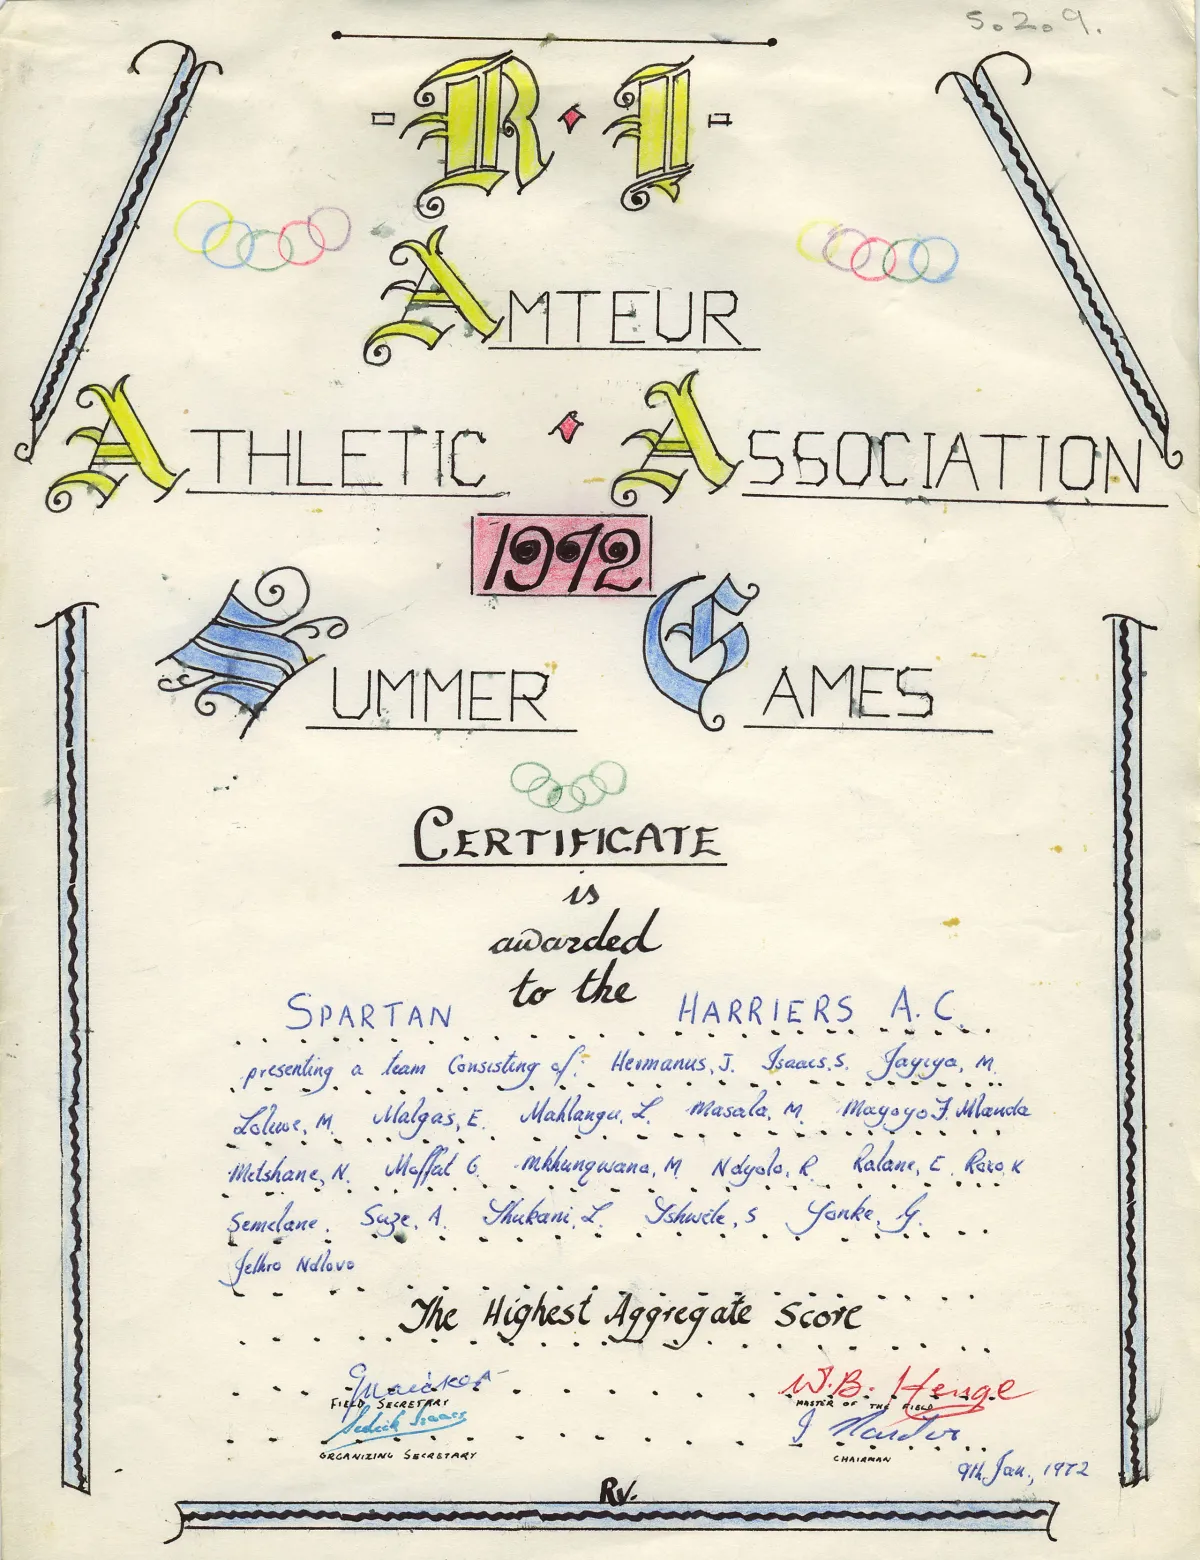 S.2.9.
R.I
AMTEUR
ATHLETIC ASSOCIATION
1972
SUMMER GAMES
CERTIFICATE
is
awarded
to the
SPARTAN HARRIERS A.C.
presenting a team Consisting of: Hermanus, J. Isaacs, S. Jayiya, M.
Loliwe, M. Malgas, E. Mahlangu, L. Masala, M. Mayoyo F. Mlauda
Metshane, N. Moffat G. Mkhungwana, M. Ndyolo, R. Ralane, E. Roro, K
Semelane. Suze, A. Thukani, L. Tshwete, S Yonke, G.
Jethro Ndlovo
The Highest Aggregate Score
W.B. Henge
FIELD SECRETARY MASTER OF THE FIELD
Sedick Isaacs
ORGANIZING SECRETARY CHAIRMAN
9th Jan., 1972
RV.